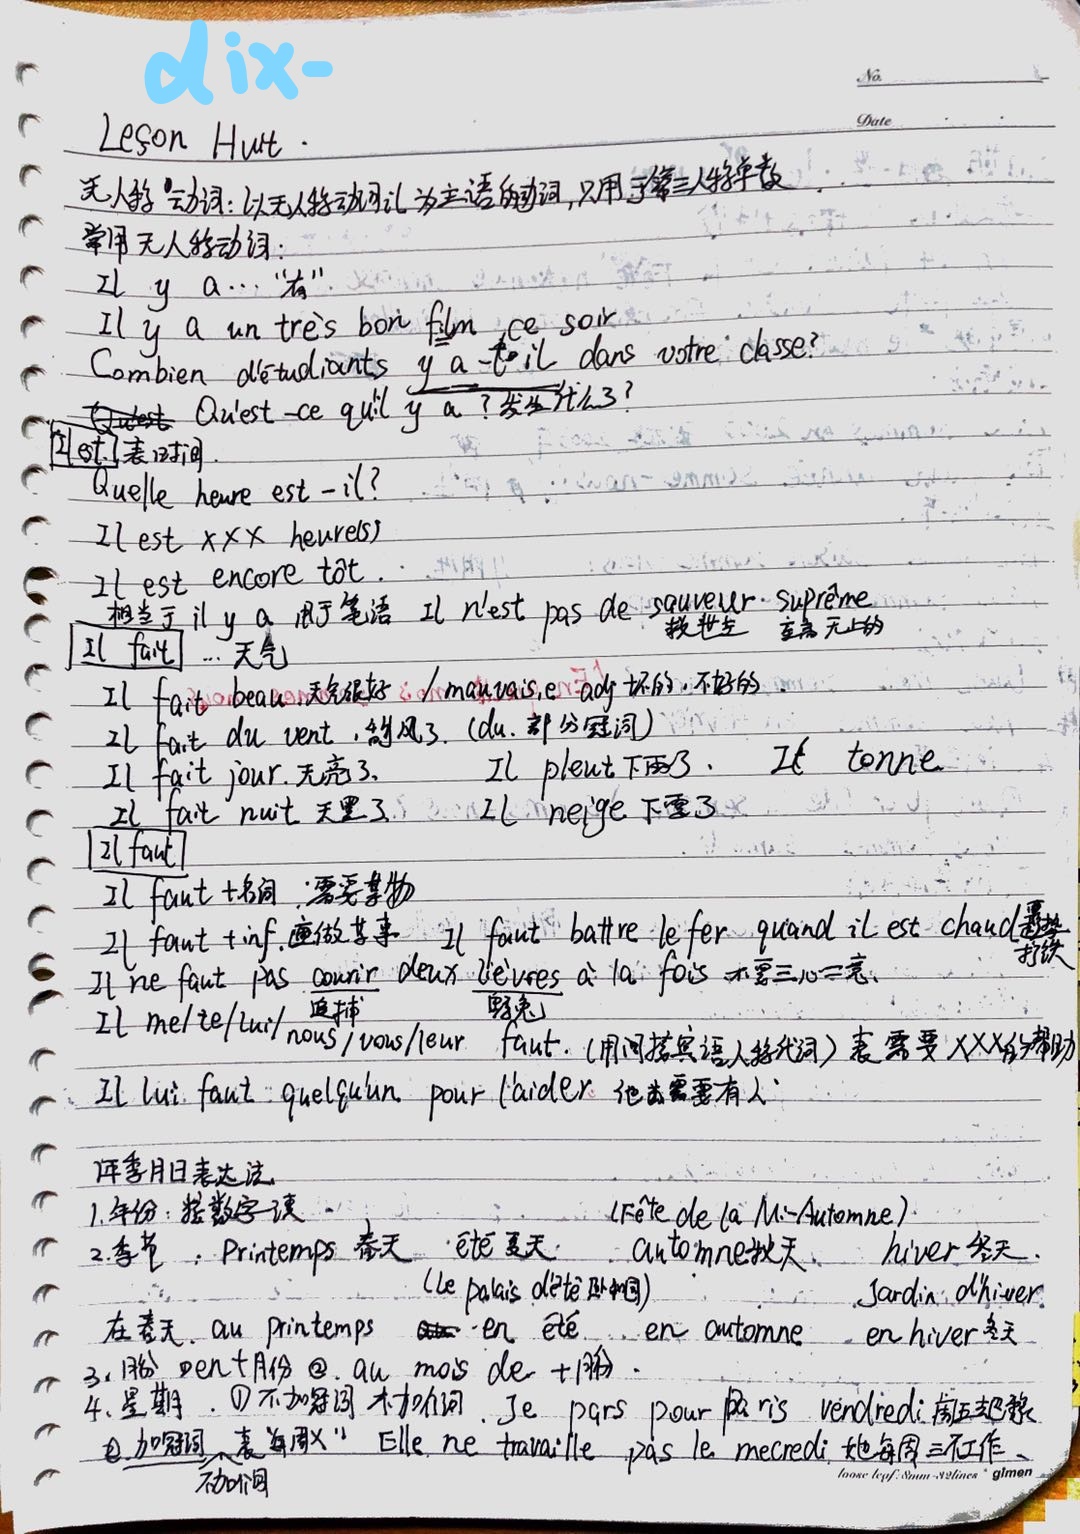 dix-
No.
Date
Leçon Huit.
无人称动词: 以无人称动词il为主语的动词,只用于第三人称单数
常用无人称动词:
Il y a… "有"
Il y a un très bon film ce soir
Combien d'étudiants y a-t-il dans votre classe?
Qu'est-ce qu'il y a? 发生什么了?
Il est 表时间.
Quelle heure est-il?
Il est xxx heure(s)
Il est encore tôt.
相当于 il y a 用于笔语 Il n'est pas de sauveur suprême
救世主 至高无上的
Il fait …天气
Il fait beau 天气很好 / mauvais,e adj 坏的.不好的.
Il fait du vent.刮风了.(du.部分冠词)
Il fait jour.天亮了. Il pleut下雨了. Il tonne
Il fait nuit 天黑了 Il neige 下雪了
Il faut
Il faut +名词:需要某物
Il faut +inf.应做某事 Il faut battre le fer quand il est chaud 打铁
Il ne faut pas courir deux lièvres à la fois 不要三心二意.
追捕 野兔
Il me/te/lui/nous/vous/leur faut.(用间接宾语人称代词)表需要xxx的帮助
Il lui faut quelqu'un pour l'aider 他需要有人
年季月日表达法.
1.年份:按数字读 (Fête de la Mi-Automne)
2.季节: Printemps 春天 été 夏天 automne秋天 hiver 冬天.
(Le palais d'été) Jardin d'hiver
在春天.au printemps en été en automne en hiver 冬天
3.月份 ①en+月份 ②.au mois de +月份.
4.星期.①不加冠词 不加介词.Je pars pour Paris vendredi 周五
②.加冠词 表"每周X" Elle ne travaille pas le mecredi 她每周三不工作.
不加介词
loose leaf. 8mm-32lines gimen